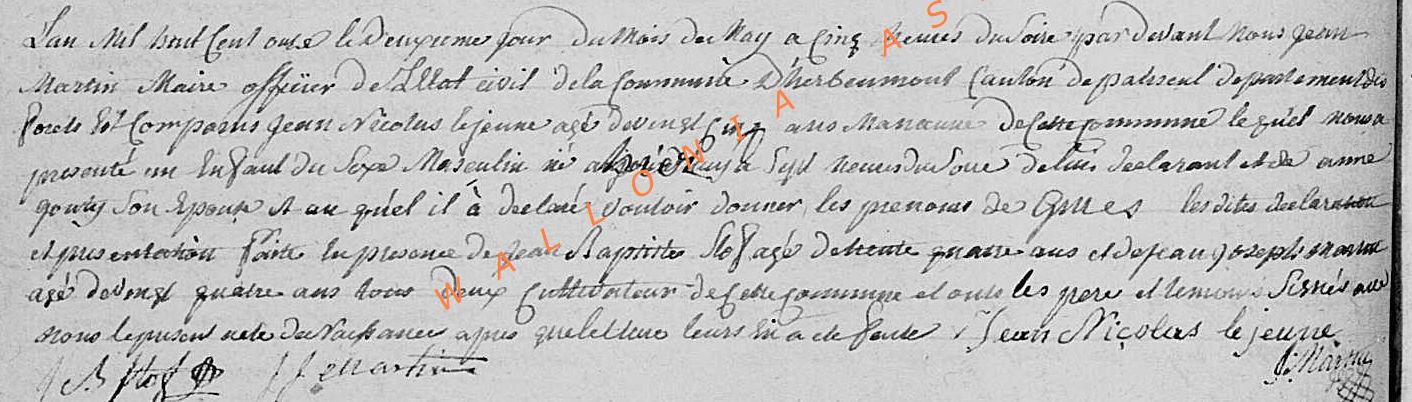 L'an Mil huit Cent onze le Deuxieme jour du Mois de May a Cinq heures du Soire par devant Nous jean
Martin Maire officier de L'Etat civil de la Commune D'herbeumont Canton de paliseul departement des
forets Est Comparus jean Nicolas lejeune agé de vingt Cinq ans Manœuvre de Cette Commune lequél nous a
presenté un Enfant du Sexe Masculin né a Sept heures du Soire de lui declarant et de anne
goury Son Epouse et au quél il à declaré vouloir donner les prenoms de les dites declaration
et presentation faite en presence de jean Baptiste Stof agé de trente quatre ans et de jean joseph martin
agé de vingt quatre ans tous deux Cultivateur de Cette Commune et onts les pere et temoins Signés avec
nous le present acte de Naissance apres que lecture leurs En a été faite Jean Nicolas lejeune
J B Stof J J Martin J: Martin
WALLONIA AS